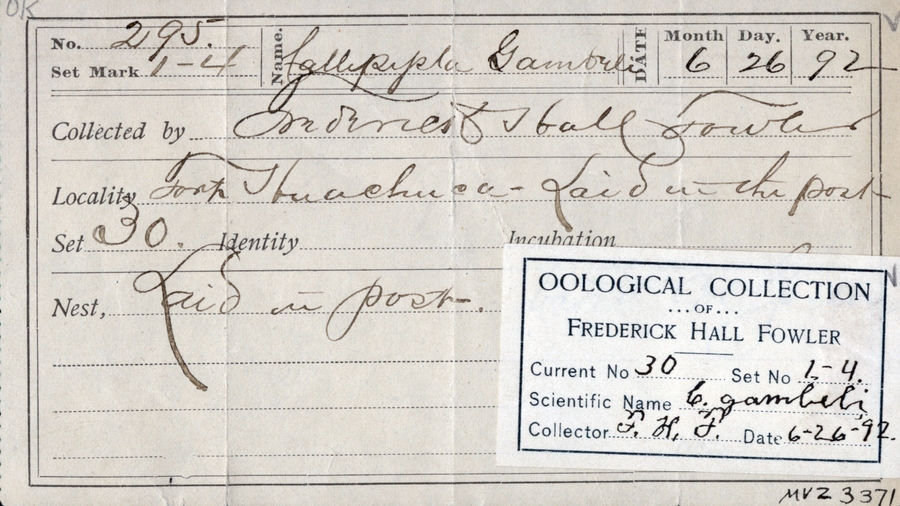 OK
No. 295. Name. Callipepla Gambeli DATE Month Day. Year.
Set Mark 1-4 6 26 92
Collected by Frederick Hall Fowler
Locality Fort Huachuca - Laid in the post
Set 30. Identity Incubation
Nest, Laid in post.
OOLOGICAL COLLECTION
...OF...
FREDERICK HALL FOWLER
Current No 30 Set No 1-4.
Scientific Name C. gambeli
Collector F. H. F. Date 6-26-92.
MVZ 3371